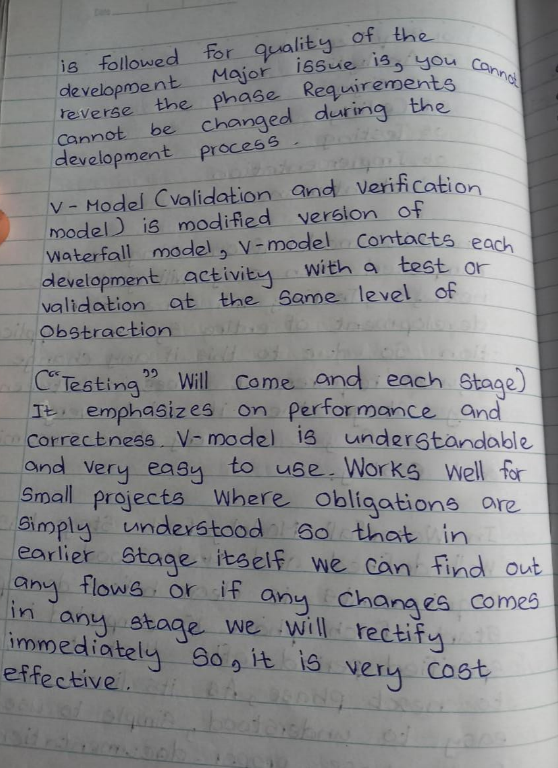 is followed for quality of the
development Major issue is, you cannot
reverse the phase Requirements
cannot be changed during the
development process.
V - Model (validation and verification
model) is modified version of
waterfall model, V-model contacts each
development activity with a test or
validation at the same level of
Obstraction
("Testing" Will come and each stage)
It emphasizes on performance and
correctness. V-model is understandable
and very easy to use. Works well for
Small projects where obligations are
simply understood so that in
earlier stage itself we can find out
any flows or if any changes comes
in any stage we will rectify
immediately so, it is very cost
effective.